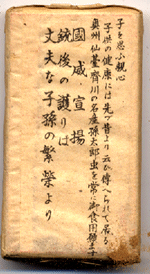 子を思ふ親心
子供の健康には先づ昔より云ひ傳へられて居る
奥州仙臺齊川の名産孫太郎虫を常に御食用極手
國威宣揚
銃後の護りは
丈夫な子孫の繁榮より